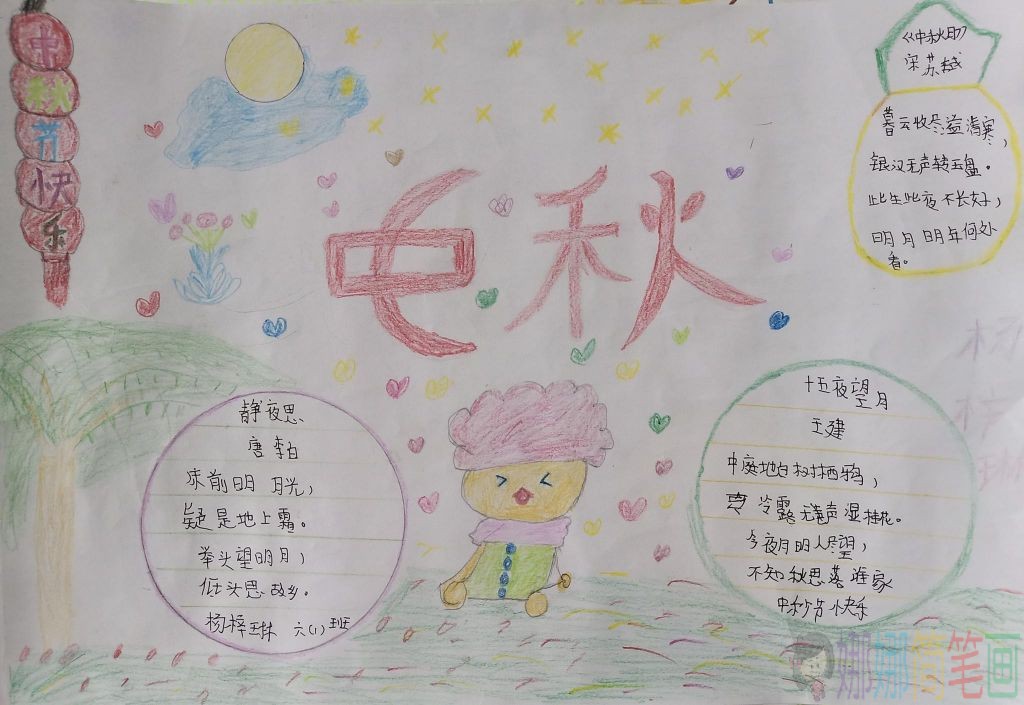 中秋节快乐
中秋
《中秋月》
宋苏轼
暮云收尽溢清寒,
银汉无声转玉盘。
此生此夜不长好,
明月明年何处
看。
静夜思
唐 李白
床前明月光,
疑是地上霜。
举头望明月,
低头思故乡。
杨梓琳 六(1)班
十五夜望月
王建
中庭地白树栖鸦,
冷露无声湿桂花。
今夜月明人尽望,
不知秋思落谁家
中秋节快乐
杨
梓
琳
娜娜简笔画